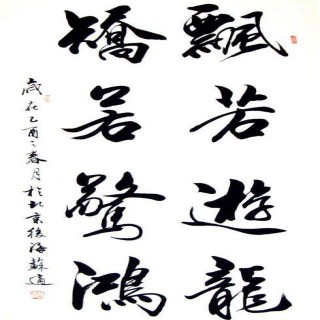 飄若遊龍
矯若驚鴻
歲在乙酉之春月於北京後海蘇適